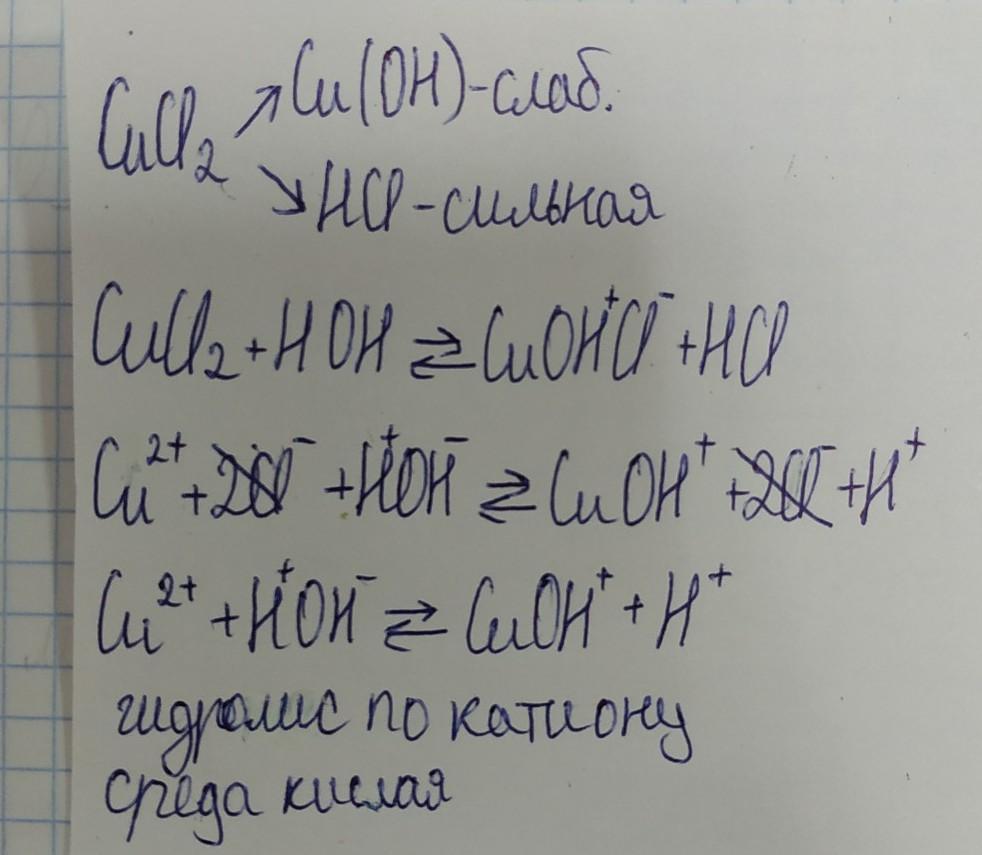 CuCl₂ ↗ Cu(OH) - слаб.
↘ HCl - сильная
CuCl₂ + HOH ⇄ CuOH⁺Cl⁻ + HCl
Cu²⁺ + 2Cl⁻ + H⁺OH⁻ ⇄ CuOH⁺ + 2Cl⁻ + H⁺
Cu²⁺ + H⁺OH⁻ ⇄ CuOH⁺ + H⁺
гидролис по катиону
среда кислая